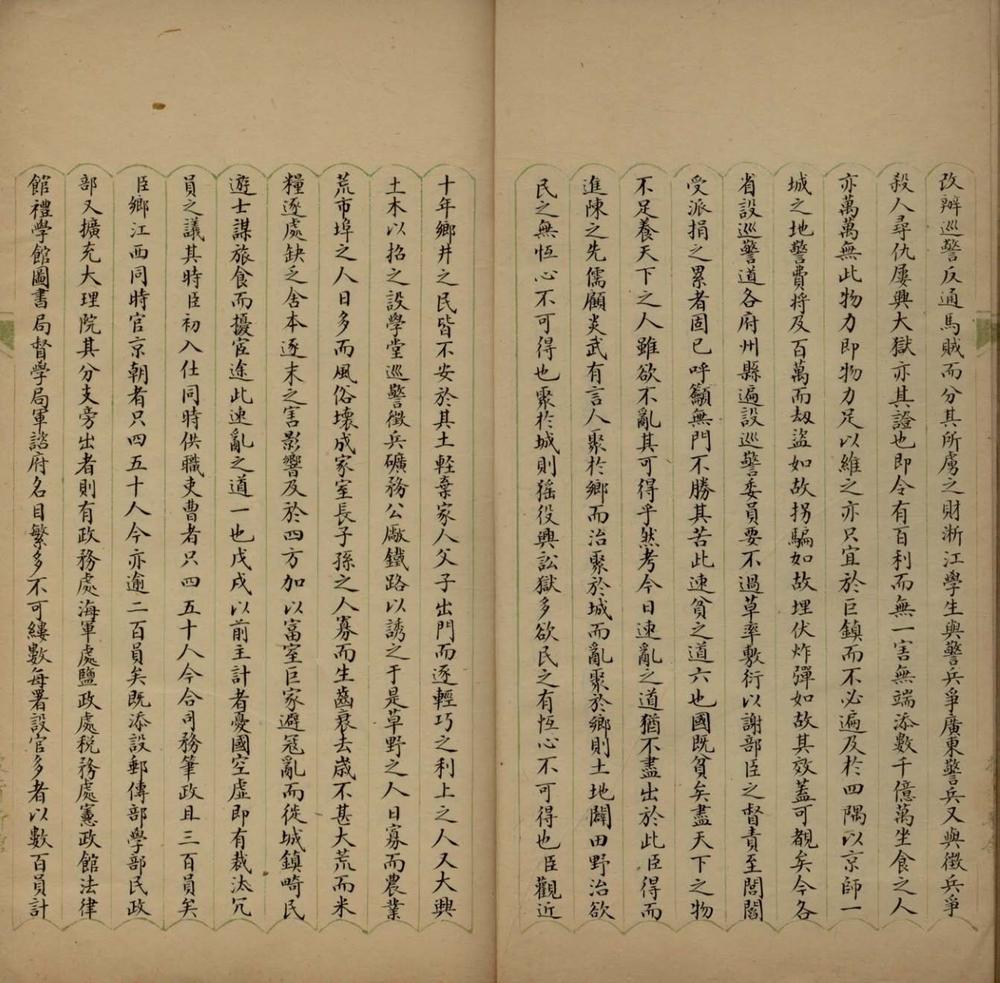 改辦巡警反通馬賊而分其所虜之財浙江學生與警兵爭廣東警兵又與徵兵爭
殺人尋仇屢興大獄亦其證也即令有百利而無一害無端添數千億萬坐食之人
亦萬萬無此物力即物力足以維之亦只宜於巨鎮而不必遍及於四隅以京師一
城之地警費將及百萬而刼盜如故拐騙如故埋伏炸彈如故其效蓋可覩矣今各
省設巡警道各府州縣遍設巡警委員要不過草率敷衍以謝部臣之督責至閭閻
受派捐之累者固已呼籲無門不勝其苦此速貧之道六也國既貧矣盡天下之物
不足養天下之人雖欲不亂其可得乎然考今日速亂之道猶不盡出於此臣得而
進陳之先儒顧炎武有言人聚於鄉而治聚於城而亂聚於鄉則土地闢田野治欲
民之無恆心不可得也聚於城則猺役興訟獄多欲民之有恆心不可得也臣觀近
十年鄉井之民皆不安於其土輕棄家人父子出門而逐輕巧之利上之人又大興
土木以招之設學堂巡警徵兵礦務公廠鐵路以誘之于是草野之人日寡而農業
荒市埠之人日多而風俗壞成家室長子孫之人寡而生齒衰去歲不甚大荒而米
糧逐處缺乏舍本逐末之害影響及於四方加以富室巨家避寇亂而徙城鎮畸民
遊士謀旅食而擾宦途此速亂之道一也戊戌以前主計者憂國空虛即有裁汰冗
員之議其時臣初入仕同時供職吏曹者只四五十人今合司務筆政且三百員矣
臣鄉江西同時官京朝者只四五十人今亦逾二百員矣既添設郵傳部學部民政
部又擴充大理院其分支旁出者則有政務處海軍處鹽政處稅務處憲政館法律
館禮學館圖書局督學局軍諮府名目繁多不可縷數每署設官多者以數百員計